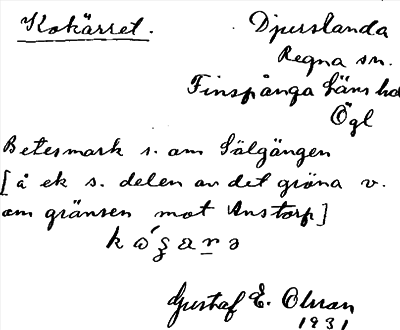 Kokärret.
Djurslanda
Regna sn.
Finspånga läns hd
Ögl
Betesmark s. om Sälgängen
[å ek s. delen av det gröna v.
om gränsen mot Anstorp]
Gustaf E. Olsson
1931